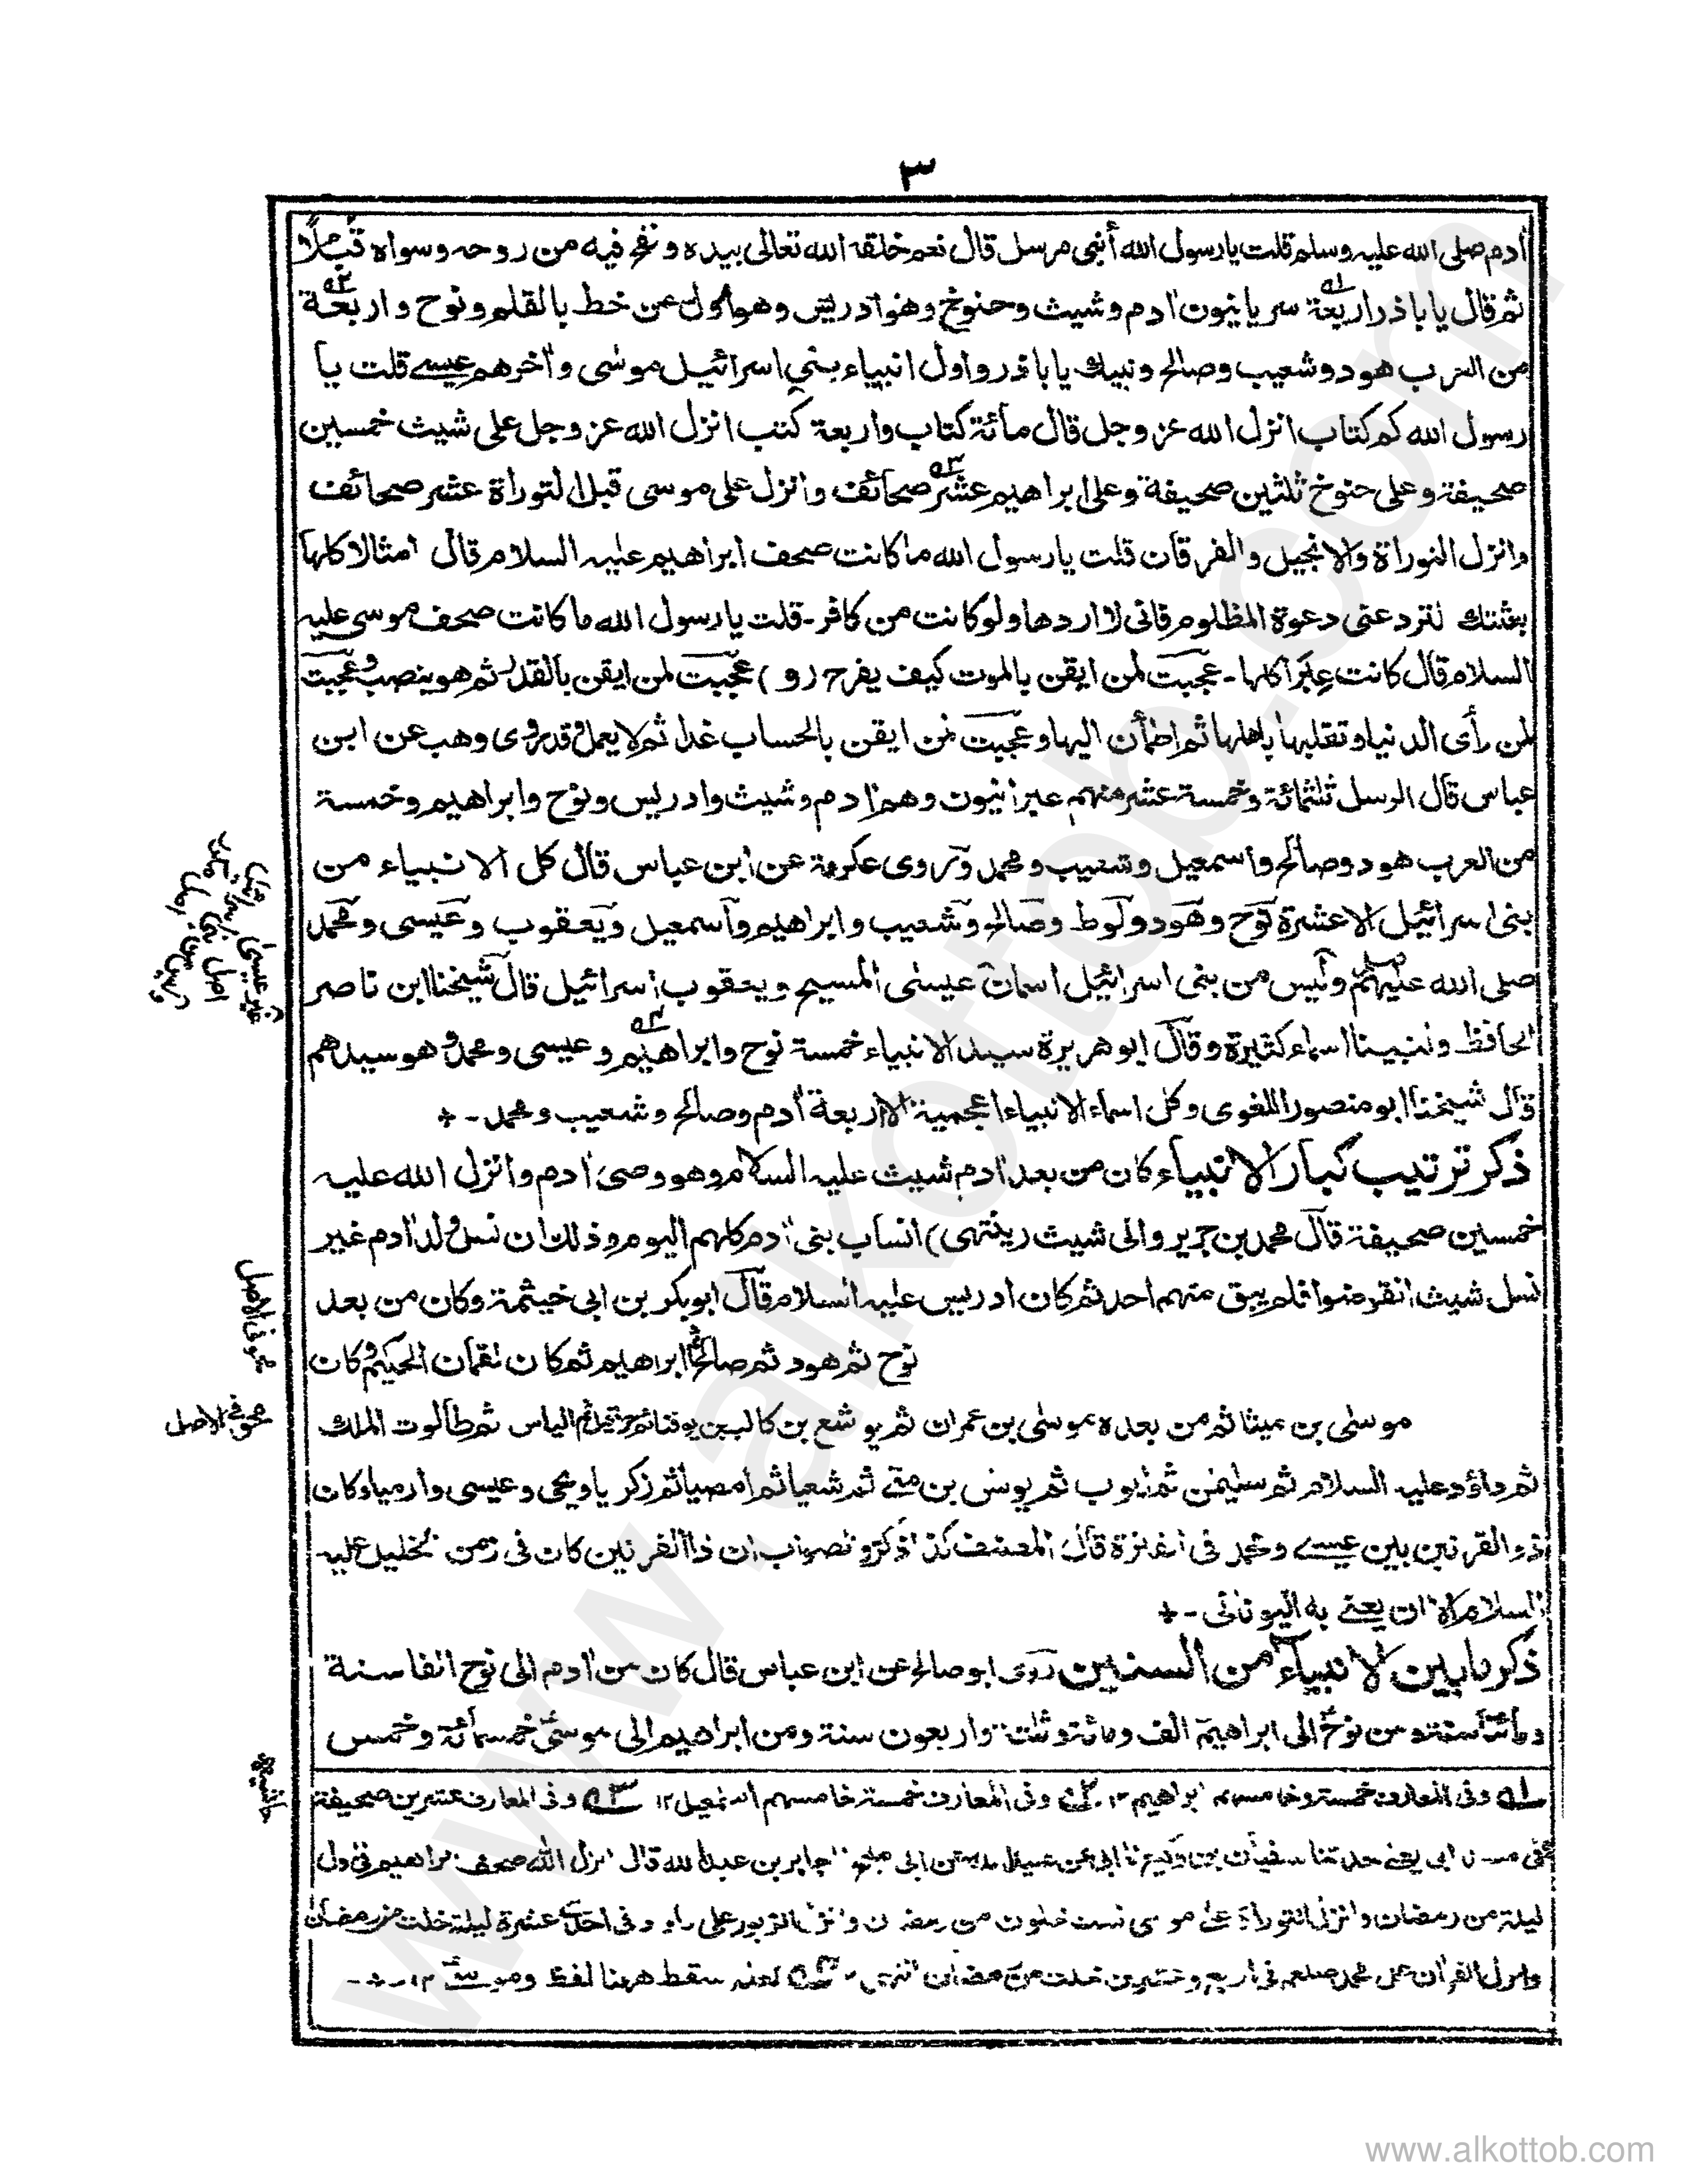 ٣
اٰدم صلى الله عليه وسلم قلت يا رسول الله أنبي مرسل قال نعم خلقه الله تعالى بيده ونفخ فيه من روحه وسواه قُبُلًا
ثم قال يا باذر اربعة سريانيون اٰدم وشيث وحنوخ وهو ادريس وهو اول من خط بالقلم ونوح واربعة
من العرب هود وشعيب وصالح ونبيك يا باذر واول انبياء بني اسرائيل موسٰى واٰخرهم عيسے قلت يا
رسول الله كم كتاب انزل الله عز وجل قال مائة كتاب واربعة كتب انزل الله عز وجل على شيث خمسين
صحيفة وعلى حنوخ ثلثين صحيفة وعلى ابراهيم عشر صحائف وانزل على موسى قبل التوراة عشر صحائف
وانزل التوراة والانجيل والفرقان قلت يا رسول الله ما كانت صحف ابراهيم عليه السلام قال امثالا كلها
بعثتك لترد عنى دعوة المظلوم فانى لا اردها ولو كانت من كافر - قلت يا رسول الله ما كانت صحف موسى عليه
السلام قال كانت عِبَرًا كلها - عجبت لمن ايقن بالموت كيف يفرح (و) عجبت لمن ايقن بالقدر ثم هو ينصب وعجبت
لمن رأى الدنيا وتقلبها باهلها ثم اطمأن اليها وعجبت لمن ايقن بالحساب غدا ثم لا يعمل وقد روى وهب عن ابن
عباس قال الرسل ثلثمائة وخمسة عشر منهم عبرانيون وهم اٰدم وشيث وادريس ونوح وابراهيم وخمسة
من العرب هود وصالح واسمعيل وشعيب ومحمد وروى عكرمة عن ابن عباس قال كل الانبياء من
بنى اسرائيل الا عشرة نوح وهود ولوط وصالح وشعيب وابراهيم واسمعيل ويعقوب وعيسى ومحمد
صلى الله عليهم وليس من بنى اسرائيل اسمان عيسٰى المسيح ويعقوب اسرائيل قال شيخنا ابن ناصر
الحافظ ولنبينا اسماء كثيرة وقال ابو هريرة سيد الانبياء خمسة نوح وابراهيم وعيسى ومحمد وهو سيدهم
قال شيخنا ابو منصور اللغوى وكل اسماء الانبياء اعجمية الا اربعة اٰدم وصالح وشعيب ومحمد -
ذكر ترتيب كبار الانبياء كان من بعد اٰدم شيث عليه السلام وهو وصى اٰدم وانزل الله عليه
خمسين صحيفة قال محمد بن جرير والى شيث (ينتهى) انساب بنى اٰدم كلهم اليوم وذلك ان نسل ولد اٰدم غير
نسل شيث انقرضوا فلم يبق منهم احد ثم كان ادريس عليه السلام قال ابو بكر بن ابى خيثمة وكان من بعد
نوح ثم هود ثم صالح ثم ابراهيم ثم كان لقمان الحكيم وكان
موسٰى بن ميثا ثم من بعده موسٰى بن عمران ثم يوشع بن كالب بن يوفنا ثم حزقيل ثم الياس ثم طالوت الملك
ثم داؤد عليه السلام ثم سليمن ثم ايوب ثم يونس بن متى ثم شعيا ثم امصيا ثم زكريا ويحيى وعيسى وارميا وكان
ذو القرنين بين عيسے ومحمد فى الفترة قال المصنف كذا ذكر والصواب ان ذا القرنين كان فى زمن الخليل عليه
السلام الا ان يعنے به اليونانى -
ذكر ما بين الانبياء من السنين روى ابو صالح عن ابن عباس قال كان من اٰدم الى نوح الفا سنة
ومائتا سنة ومن نوح الى ابراهيم الف ومائة وثلث واربعون سنة ومن ابراهيم الى موسى خمسمائة وخمس
غير عيسى
اصل
محو فى الاصل
محو فى الاصل
حاشيه
١ وفى المعارف خمسة وخامسهم ابراهيم ١٢ ٢ وفى المعارف خمسة خامسهم اسمعيل ١٢ ٣ وفى المعارف عشرين صحيفة
حدثنا سفيان بن وكيع جابر بن عبد الله قال انزل الله صحف ابراهيم فى اول
ليلة من رمضان وانزل التوراة على موسى لست خلون من رمضان وانزل الزبور على داود فى احدى عشرة ليلة خلت من رمضان
وانزل القراٰن على محمد صلعم فى اربع وعشرين خلت من رمضان انتهى ٤ لعله سقط ههنا لفظ وموسے ١٢ -